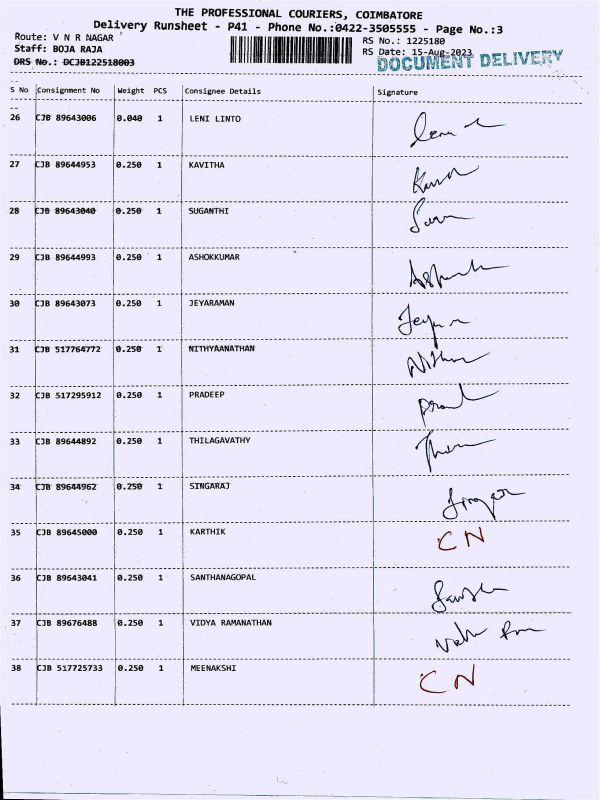 THE PROFESSIONAL COURIERS, COIMBATORE
Delivery Runsheet - P41 - Phone No.:0422-3505555 - Page No.:3
Route: V N R NAGAR
RS No.: 1225180
Staff: BOJA RAJA
RS Date: 15-Aug-2023
DRS No.: DCJB122518003
DOCUMENT DELIVERY
S No Consignment No Weight PCS Consignee Details Signature
26 CJB 89643006 0.040 1 LENI LINTO
27 CJB 89644953 0.250 1 KAVITHA
28 CJB 89643040 0.250 1 SUGANTHI
29 CJB 89644993 0.250 1 ASHOKKUMAR
30 CJB 89643073 0.250 1 JEYARAMAN
31 CJB 517764772 0.250 1 NITHYAANATHAN
32 CJB 517295912 0.250 1 PRADEEP
33 CJB 89644892 0.250 1 THILAGAVATHY
34 CJB 89644962 0.250 1 SINGARAJ
35 CJB 89645000 0.250 1 KARTHIK CN
36 CJB 89643041 0.250 1 SANTHANAGOPAL
37 CJB 89676488 0.250 1 VIDYA RAMANATHAN
38 CJB 517725733 0.250 1 MEENAKSHI CN